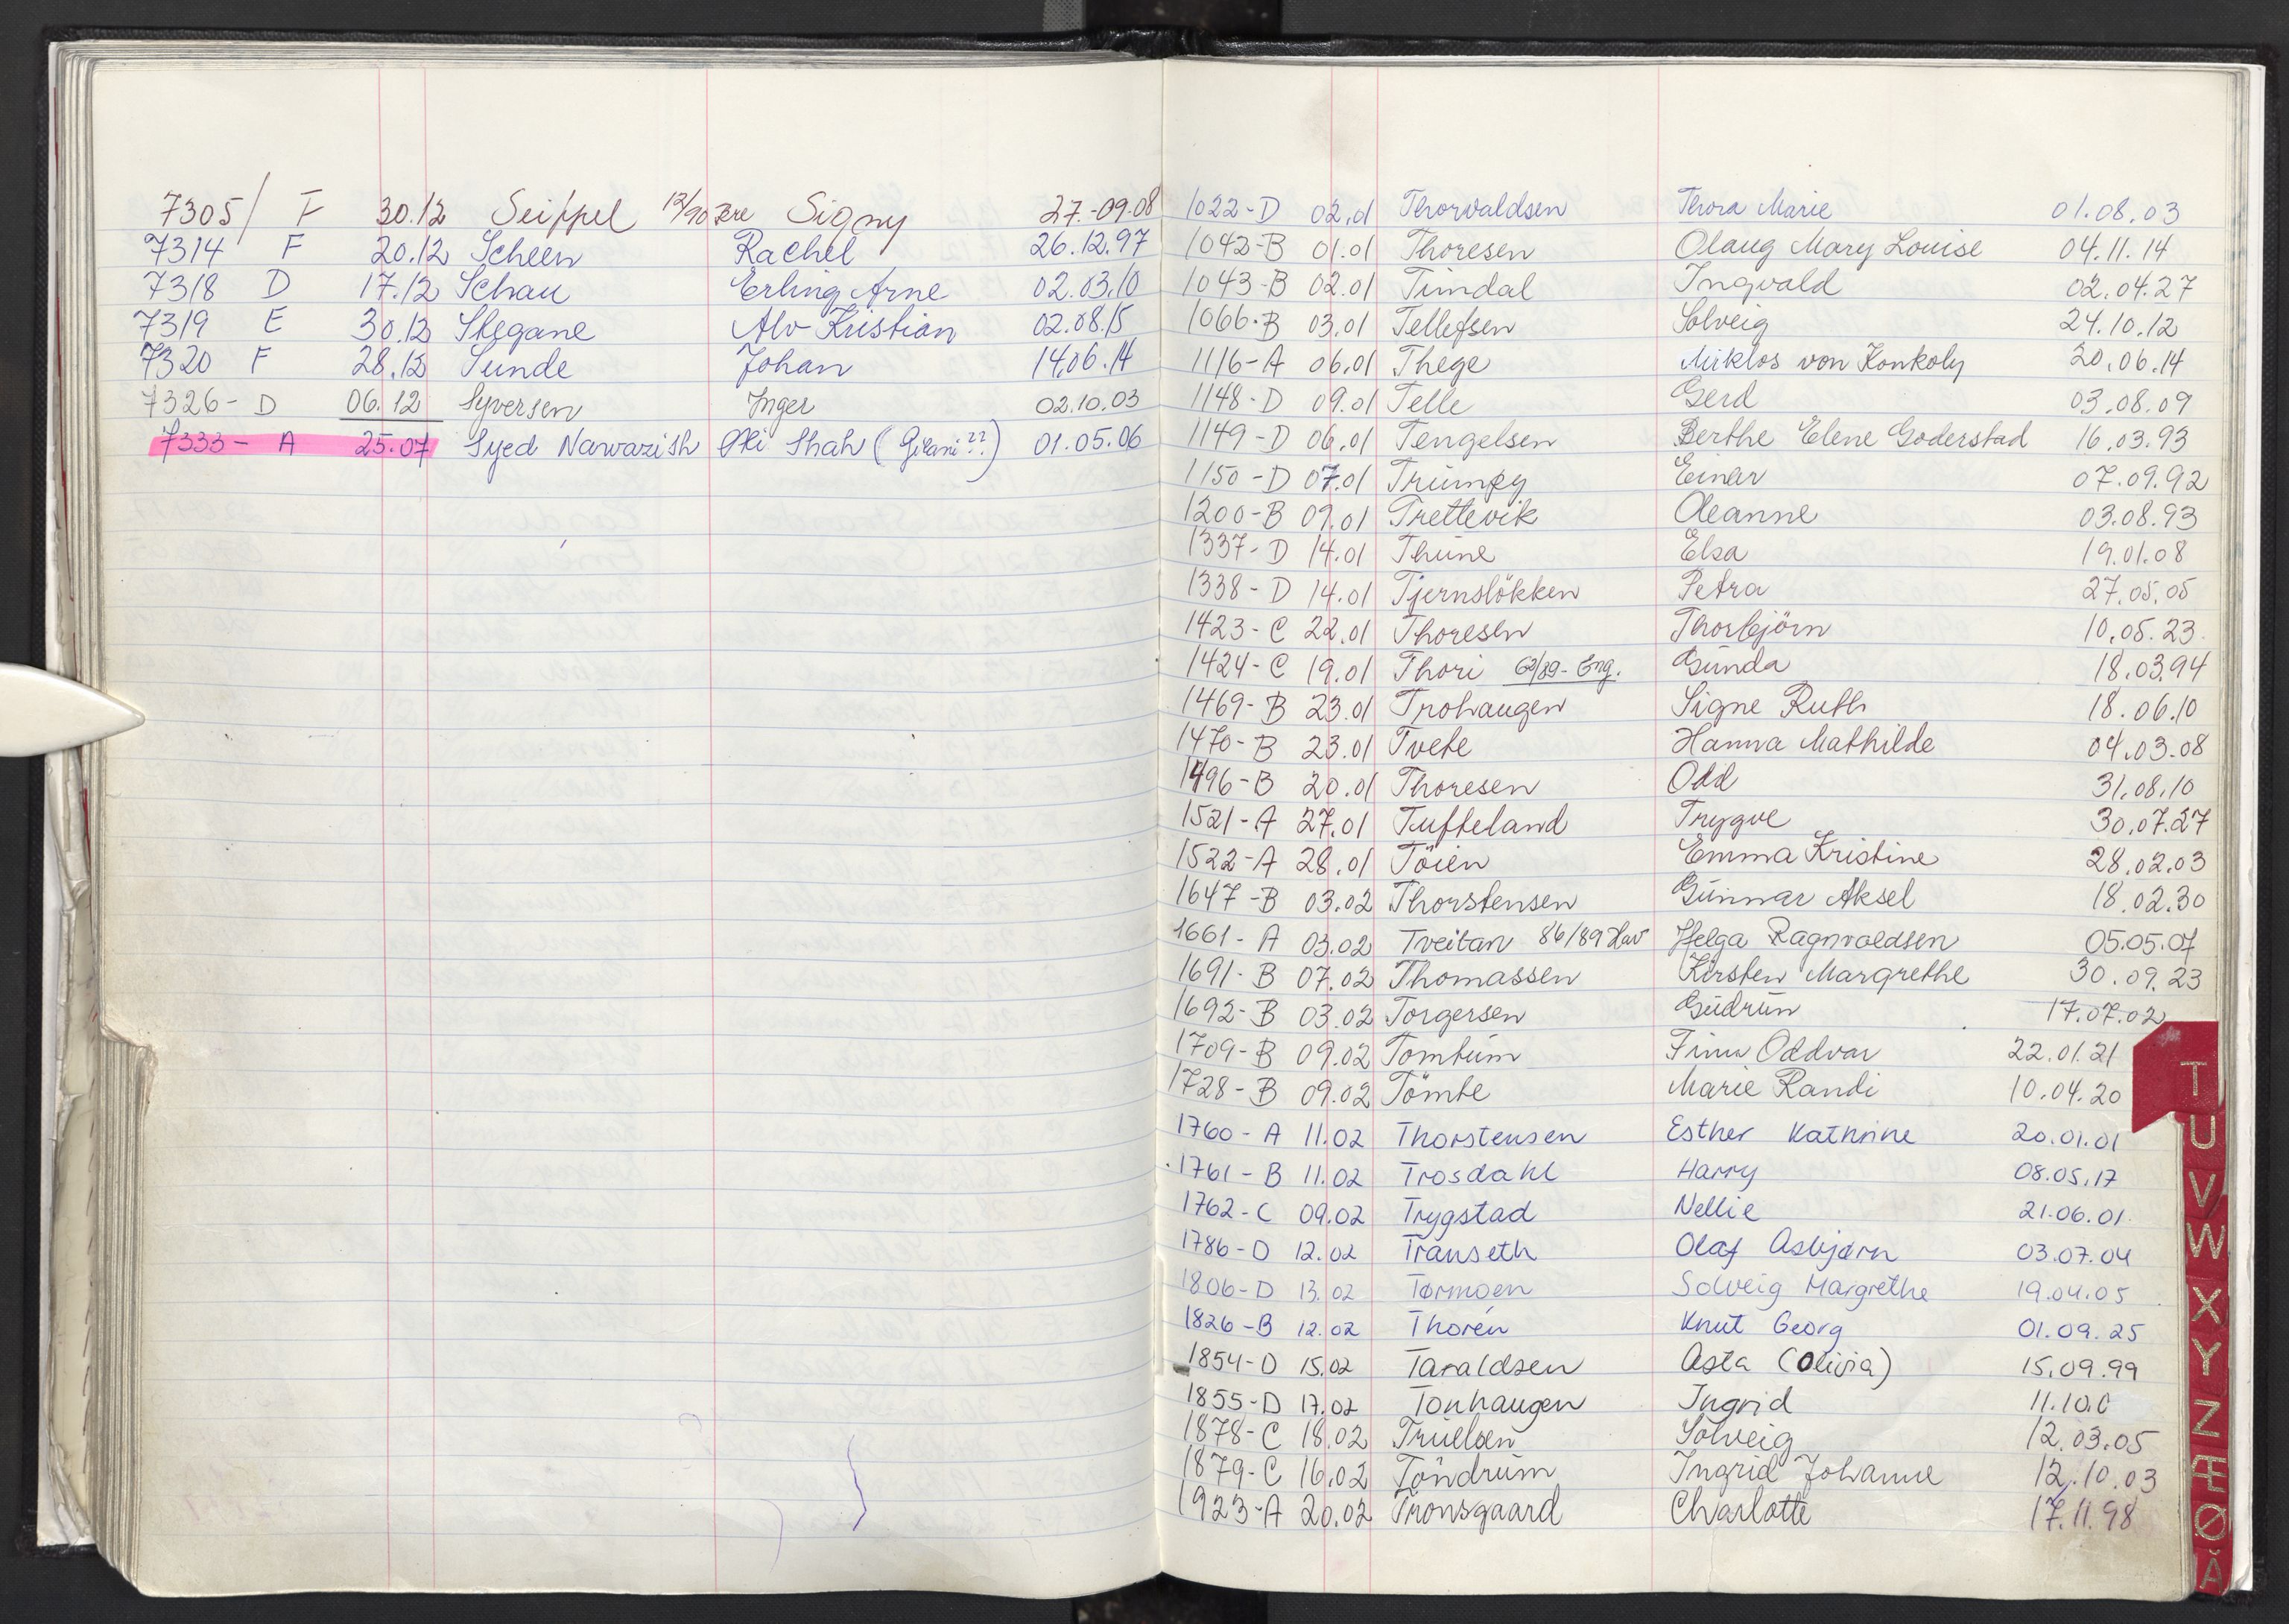 7305/ F 30.12 Seippel 12/90 Signy 27.-09.08
7314 F 20.12 Scheen Rachel 26.12.97
7318 D 17.12 Schau Erling Arne 02.03.10
7319 E 30.12 Stegane Alv Kristian 02.08.15
7320 F 28.12 Sunde Johan 14.06.14
7326- D 06.12 Syversen Inger 02.10.03
7333- A 25.07 Syed Nawazish Ali Shah (Gilani??) 01.05.06
1022-D 02.01 Thorvaldsen Thora Marie 01.08.03
1042-B 01.01 Thoresen Olaug Mary Louise 04.11.14
1043-B 02.01 Timdal Ingvald 02.04.27
1066-B 03.01 Tellefsen Solveig 24.10.12
1116-A 06.01 Thege Miklos von Konkoly 20.06.14
1148-D 09.01 Telle Gerd 03.08.09
1149-D 06.01 Tengelsen Berthe Elene Goderstad 16.03.93
1150-D 07.01 Trumpy Einar 07.09.92
1200-B 09.01 Trettevik Oleanne 03.08.93
1337-D 14.01 Thune Elsa 19.01.08
1338-D 14.01 Tjernslökken Petra 27.05.05
1423-C 22.01 Thoresen Thorbjörn 10.05.23
1424-C 19.01 Thori 62/89-Eng. Gunda 18.03.94
1469-B 23.01 Trohaugen Signe Ruth 18.06.10
1470-B 23.01 Tvete Hanna Mathilde 04.03.08
1496-B 20.01 Thoresen Odd 31.08.10
1521-A 27.01 Tufteland Trygve 30.07.27
1522-A 28.01 Töien Emma Kristine 28.02.03
1647-B 03.02 Thorstensen Gunnar Aksel 18.02.30
1661-A 03.02 Tveitan 86/89 Hav Helga Ragnvaldsen 05.05.07
1691-B 07.02 Thomassen Kirsten Margrethe 30.09.23
1692-B 03.02 Torgersen Gudrun 17.07.02
1709-B 09.02 Tomtum Finn Oddvar 22.01.21
1728-B 09.02 Tömte Marie Randi 10.04.20
1760-A 11.02 Thorstensen Esther Kathrine 20.01.01
1761-B 11.02 Trosdahl Harry 08.05.17
1762-C 09.02 Trygstad Nellie 21.06.01
1786-D 12.02 Transeth Olaf Asbjørn 03.07.04
1806-D 13.02 Tørmoen Solveig Margrethe 19.04.05
1826-B 12.02 Thorén Knut Georg 01.09.25
1854-D 15.02 Taraldsen Asta (Olivia) 15.09.99
1855-D 17.02 Tonhaugen Ingrid 11.10.0
1878-C 18.02 Truelsen Solveig 12.03.05
1879-C 16.02 Töndrum Ingrid Johanne 12.10.03
1923-A 20.02 Tronsgaard Charlotte 17.11.98
T
U
V
W
X
Y
Z
Æ
Ø
Å